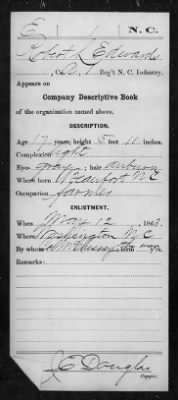 E N. C.
Robert L Edwards
Co. 1 Reg't N. C. Infantry.
Appears on
Company Descriptive Book
of the organization named above.
DESCRIPTION.
Age 17 years; height 5 feet 11 inches.
Complexion light
Eyes gray; hair auburn
Where born Beaufort N C
Occupation farmer
ENLISTMENT.
When May 12, 1863.
Where Washington N. C.
By whom ; term war y'rs.
Remarks:
J E Douglas
Copyist.